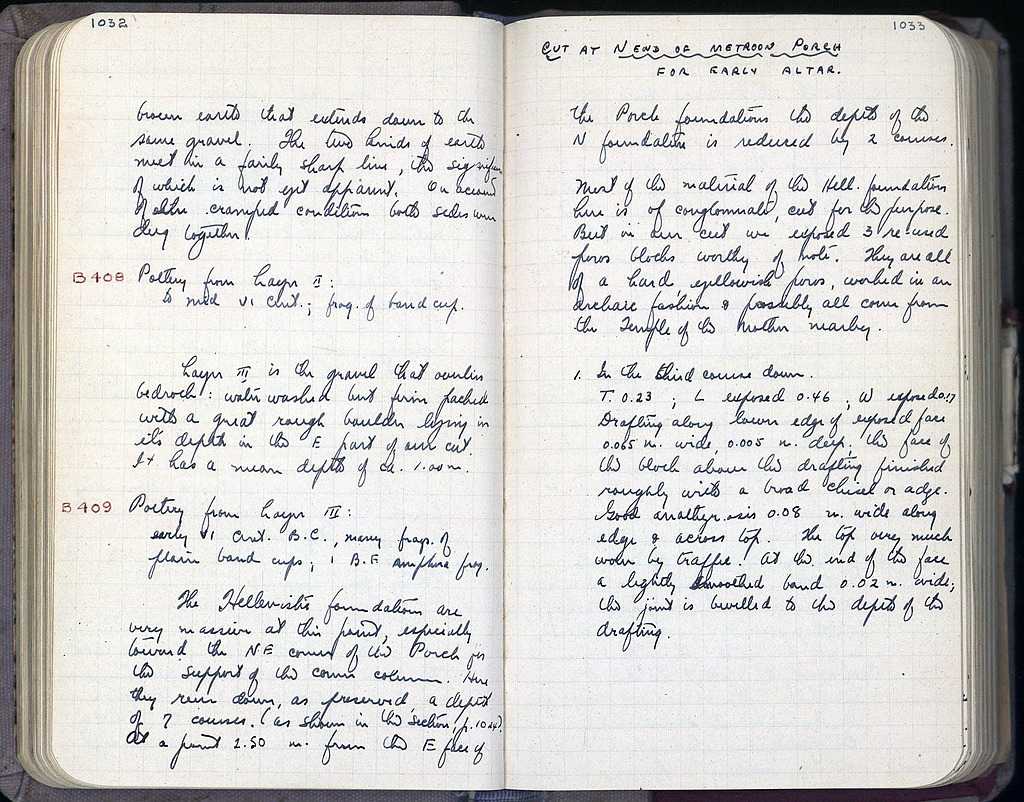 1032
brown earth that extends down to the
same gravel. The two kinds of earth
meet in a fairly sharp line, the
of which is not yet apparent. On account
of the cramped conditions both sides were
dug together.
B 408 Pottery from Layer II:
to mid VI Cent.; frag. of band cup.
Layer III is the gravel that overlies
bedrock: water washed but firm packed
with a great rough boulder lying in
its depth in the E part of our cut.
It has a mean depth of ca. 1.00 m.
B 409 Pottery from Layer III:
early VI Cent. B.C., many frags. of
plain band cups; 1 B.F. amphora frag.
The Hellenistic foundations are
very massive at this point, especially
toward the NE corner of the Porch for
the support of the corner column. Here
they run down, as preserved, a depth
of 7 courses. (as shown in the section, p.
At a point 2.50 m. from the E face of
1033
CUT AT N END OF METROON PORCH
FOR EARLY ALTAR.
the Porch foundations the depth of the
N foundation is reduced by 2 courses.
Most of the material of the Hell. foundations
here is of conglomerate, cut for the purpose.
But in our cut we exposed 3 re-used
poros blocks worthy of note. They are all
of a hard, yellowish poros, worked in an
archaic fashion & possibly all come from
the Temple of the Mother nearby.
1. In the third course down.
T. 0.23; L exposed 0.46; W exposed 0.17
Drafting along lower edge of exposed face
0.065 m. wide, 0.005 m. deep; the face of
the block above the drafting finished
roughly with a broad chisel or adze.
Good anathyrosis 0.08 m. wide along
edge & across top. The top very much
worn by traffic. At the end of the face
a lightly smoothed band 0.02 m. wide;
the joint is bevelled to the depth of the
drafting.